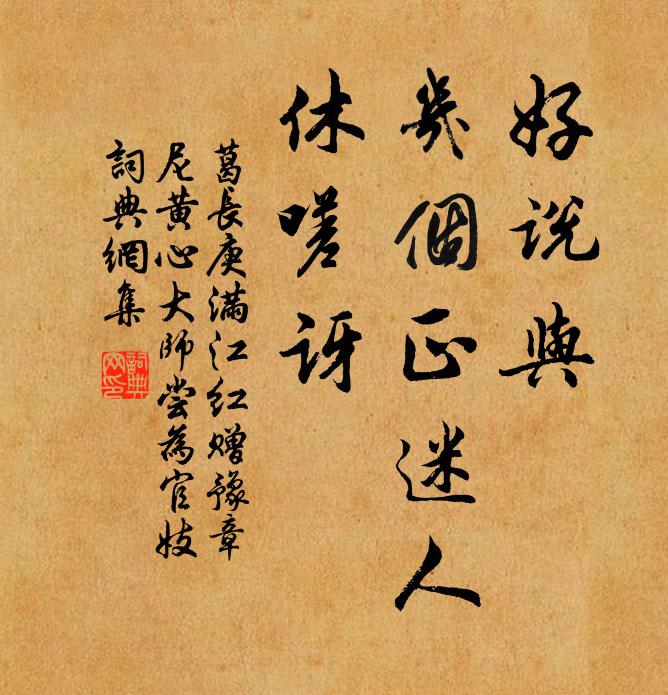 好說與
幾個正迷人
休嗟訝
葛長庚滿江紅贈豫章
尼黃心大師嘗為官妓
詞典網集
詞典網印